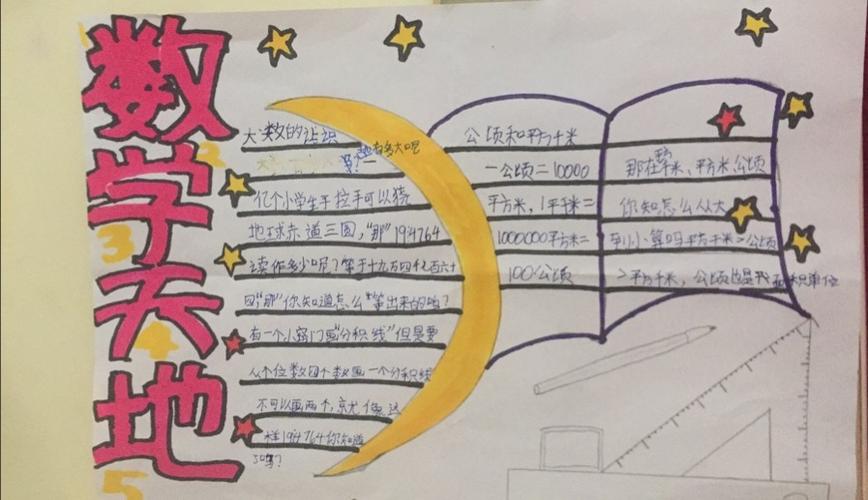 数学天地
1
2
3
4
5
大数的认识
有多大呢
亿个小学生手拉手可以绕
地球赤道三圈，“那”194764
读作多少呢？等于十九万四千七百六十
四“那”你知道怎么“算出来的吗？
有一个小窍门画“分积线”但是要
从个位数四个数画一个分积线
不可以画两个，就像这
样194764你知道
了吗？
公顷和平方千米
一公顷=10000
平方米，1平千米=
1000000平方米=
100公顷
那在千米、平方米、公顷
你知怎么从大
到小算吗平方千米>公顷
>平方千米，公顷也是我面积单位